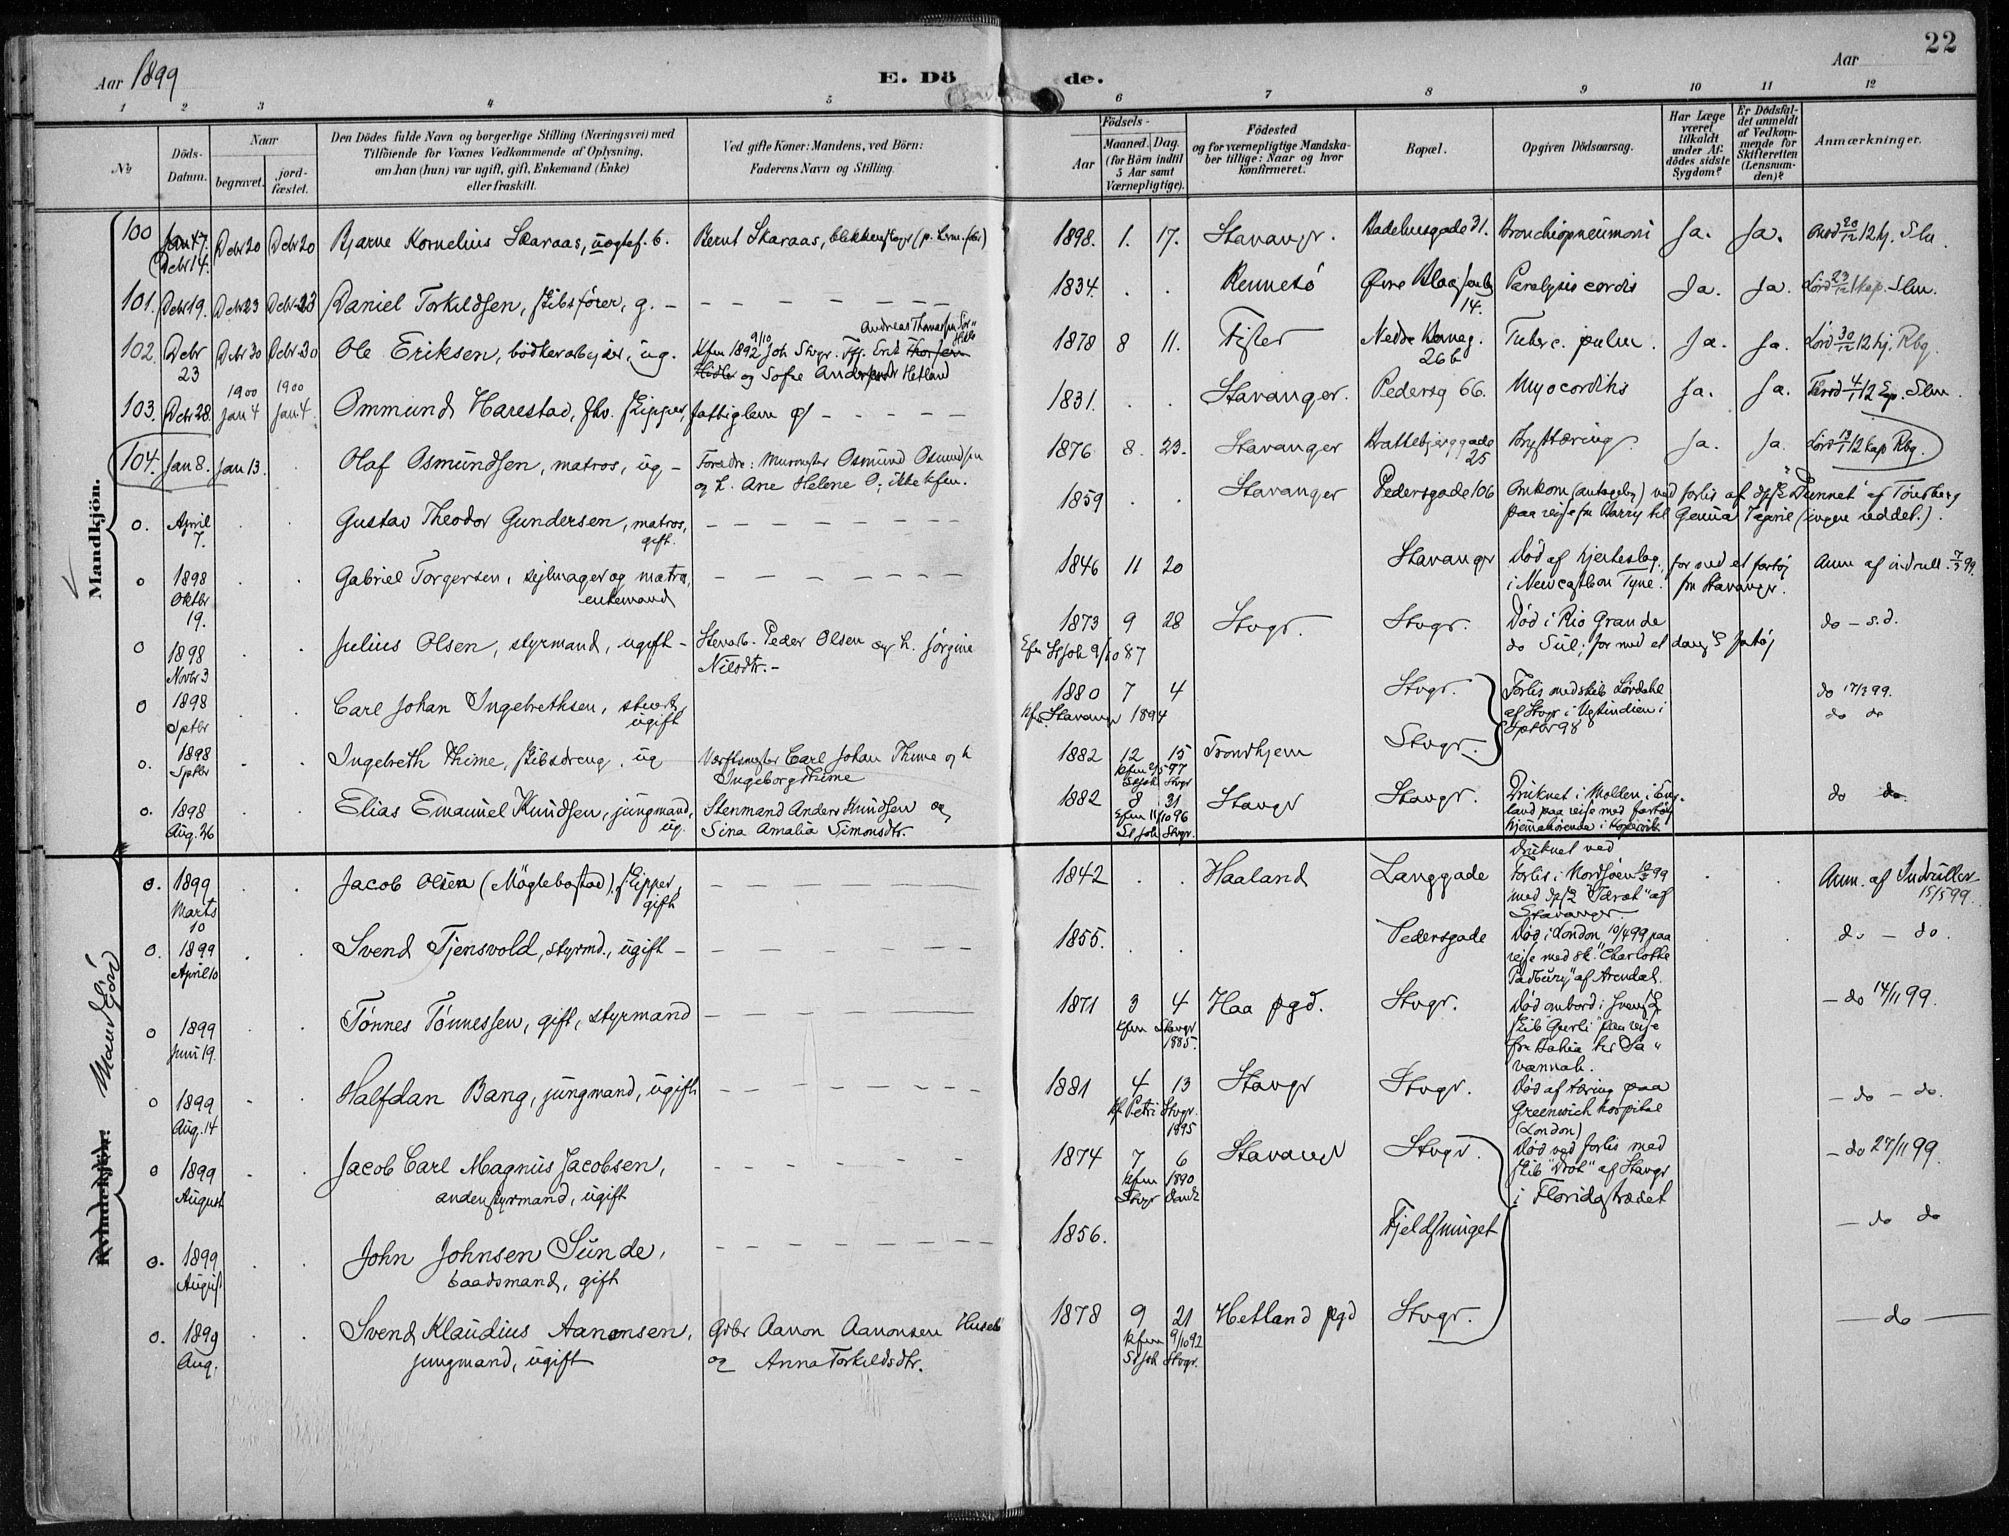 Aar 1899
E. Dö de.
Aar
22
1 2 3 4 5 6 7 8 9 10 11 12
No
Döds-
Datum.
Naar
begravet.
jord-
fæstet.
Den Dödes fulde Navn og borgerlige Stilling (Næringsvei) med
Tilföiende for Voxnes Vedkommende af Oplysning,
om han (hun) var ugift, gift, Enkemand (Enke)
eller fraskilt.
Ved gifte Koner: Mandens, ved Börn:
Faderens Navn og Stilling.
Födsels-
Aar
Maaned. Dag.
(for Börn indtil
5 Aar samt
Værnepligtige).
Födested
og for værnepligtige Mandska-
ber tillige: Naar og hvor
konfirmeret.
Bopæl.
Opgiven Dödsaarsag.
Har Læge
været
tilkaldt
under Af-
dödes sidste
Sygdom?
Er Dödsfal-
det anmeldt
af Vedkom-
mende for
Skifteretten
(Lensman-
den)?
Anmærkninger.
Mandkjön.
100 Jan 17. Debr 14. Debr 20 Debr 20 Bjarne Kornelius Skaraas, uægtef. b. Bernt Skaraas, 1898. 1. 17. Stavangr. Badehusgade 31. Bronchiopneumoni Ja. Ja. 20/12 12 hj. Slm.
101. Debr 19. Debr 23 Debr 23 Daniel Torkildsen, skibsfører, g. - 1834. . . Rennesö Øvre 14. Paralysis cordis Ja. Ja. Lörd 23/12 1 kap. Slm.
102. Debr 23 Debr 30 Debr 30 Ole Eriksen, bödkerarbejder, ug. Kfm 1892 9/10 Joh Stvgr. Erik Andreas og Sofie Hetland 1878 8 11. Fister Nedre 26 b Tuberc. pulm. Ja. Ja. Lörd 30/12 12 hj. Rbg.
103. Debr 28. 1900 Jan 4 1900 Jan 4. Ommund Harestad, fhv. skipper, fattiglem 1831. . . Stavanger. Pedersg 66. Myocorditis Ja. Ja. 4/1 12 kp. Slm.
104. Jan 8. Jan 13. . Olaf Osmundsen, matros, ug - Forældre: Murmester Osmund Osmundsen
og h. Ane Helene O; ikke kfm. 1876 8. 23. Stavanger 25 Ja. Ja. Lörd 13/1 12 kap Rbg.
o. April 7. . . Gustav Theodor Gundersen, matros, gift. 1859 . . Stavanger Pedersgade 106 Omkom (antagelig) ved forlis af af Tönsberg
paa rejse fra Barry til Genua 7 april (ingen reddet.).
o 1898 Oktbr 19. . . Gabriel Torgersen, sejlmager og matros, enkemand 1846 11 20 Stavangr Död af hjerteslag, for med et fartöj
i Newcastle on Tyne. fra Stavangr. Anm af indrull. 7/3 99.
o 1898 Novbr 3 . . Julius Olsen, styrmand, ugift - Stenarb. Peder Olsen og h. Jörgine
Nilsdtr. - 1873 9 28 Kfm St Joh 9/10 87 Stvgr. Stvgr. Död i Rio Grande
do Sul, for med et dansk fartöj do - s.d.
o 1898 Sptbr . . Carl Johan Ingebrethsen, stuert, ugift 1880 7 4 kfm. Stavangr 1894 Stvgr. Forlis med skib Lövdahl
af Stvgr i Vestindien i
Sptbr 98 do 17/3 99.
do do
o. 1898 Sptbr . . Ingebreth Thime, skibsdreng, ug Værftsmester Carl Johan Thime og h
Ingeborg Thime 1882 12 15 Kfm 2/5 97 St Joh Stvgr Trondhjem Stvgr.
o. 1898 Aug. 26 . . Elias Emanuel Knudsen, jungmand, ug. Stenmand Anders Knudsen og
Sina Amalia Simonsdtr. 1882 8 31 Kfm 11/10 96 St Joh Stvgr. Stavgr Stavgr. Druknet i i Eng-
land paa rejse med fartöj
hjemmehörende i Kopervik do do.
Mandkjön
Kvindekjön.
o. 1899 Marts 10 . . Jacob Olsen (Möglebostad), skipper, gift 1842 . . Haaland Langgade Druknet ved
Forlis i Nordsöen 99
med dpsk "Idræt" af
Stavanger. Anm. af Indruller.
15/5 99.
o. 1899 April 10 . . Svend Tjensvold, styrmd., ugift - 1855. . . Pedersgade Död i London 10/4 99 paa
rejse med sk. "Charlotte
Padbury" af Arendal. do - do.
o 1899 Juni 19. . . Tönnes Tönnessen, gift, styrmand 1871 3 4 Kfm Stavgr 1885. Haa pgd. Stvgr. Död ombord i svensk
skib "Gurli" paa rejse
fra Bahia til Sa-
vannah. - do 14/11 99.
o 1899 Aug. 14 . . Halfdan Bang, jungmand, ugift 1881 4 13 Kf Petri Stvgr. 1895 Stavgr Stvgr. Död af tæring paa
Greenwich hospital
(London) - do - do.
o 1899 August Jacob Carl Magnus Jacobsen,
anden styrmand, ugift 1874 7 6 Kfm 1890 Stvgr Domk Stavangr Stvgr. Död ved forlis med
skib "Drot" af Stavgr
i Floridastrædet - do 27/11 99.
o. 1899 August . . John Johnsen Sunde,
baadsmand, gift 1856. Fjeldsmuget - do do
o. 1899 Aug. . . Svend Klaudius Aanensen,
jungmand, ugift Gdbr Aanon Aanonsen
og Anna Torkildsdtr. 1878 9 21 Kfm 9/10 92 St Joh Stvgr. Hetland pgd Stvgr. - do -